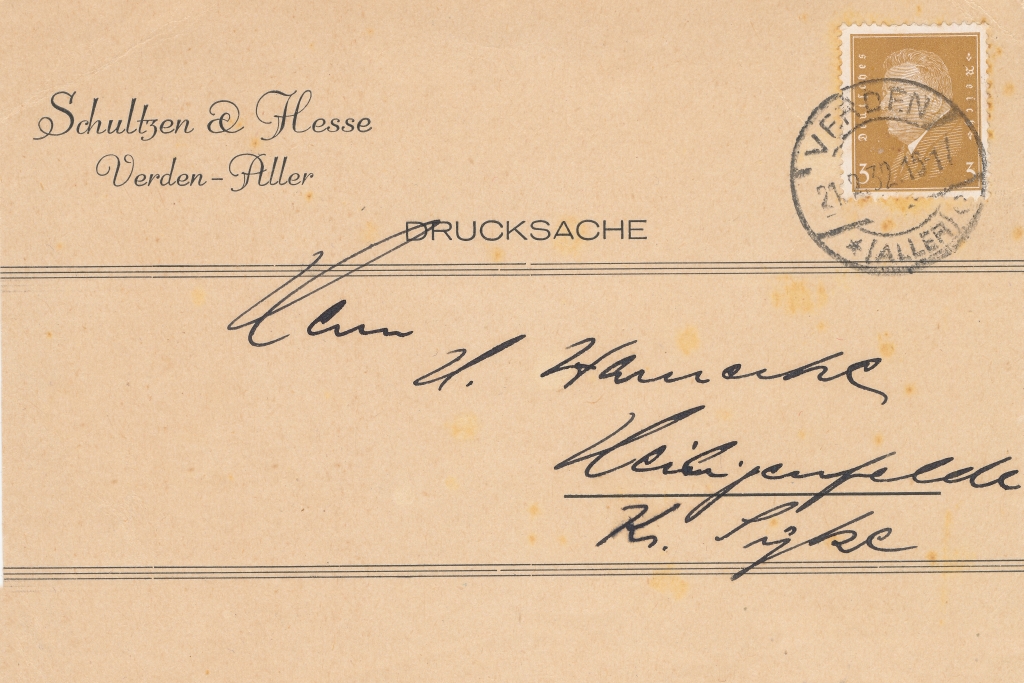 Schultzen & Hesse
Verden-Aller
DRUCKSACHE
Deutsches Reich
3 3
VERDEN
21.2.32.
(ALLER)
Herrn
H. Warnecke
Heiligenfelde
Kr. Syke